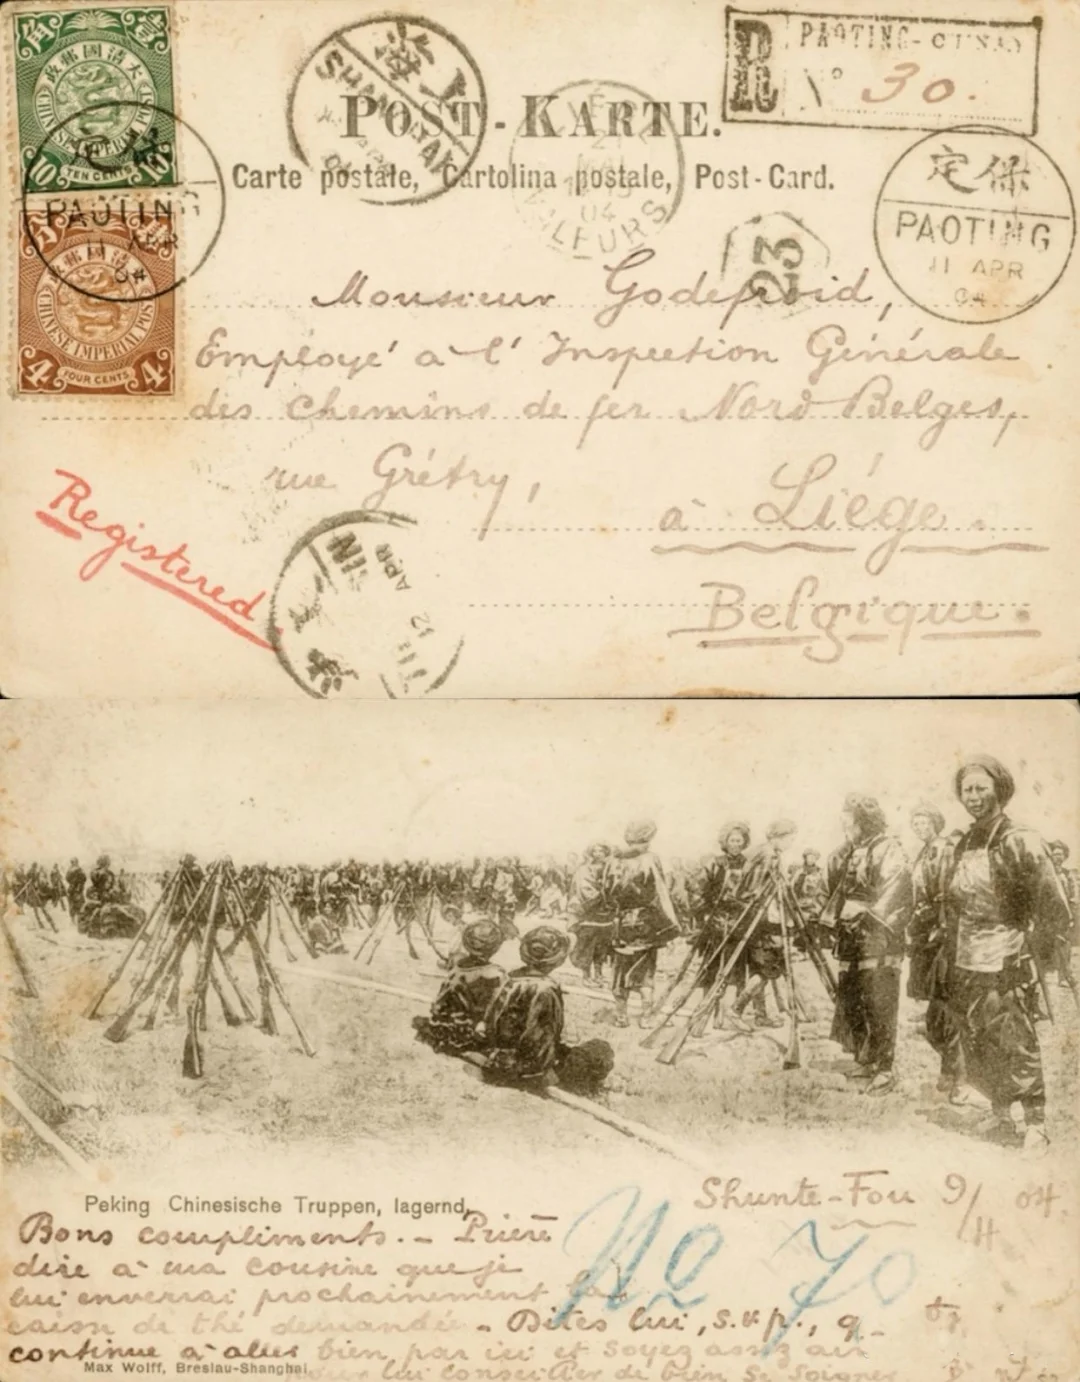 壹 角
大清國郵政
CHINESE IMPERIAL POST
10 TEN CENTS 10
PAOTING
11 APR
04
CHINESE IMPERIAL POST
4 FOUR CENTS 4
上海
SHANGHAI
APR
04
R PAOTING-
N° 30.
POST-KARTE.
Carte postale, Cartolina postale, Post-Card.
04
23
保定
PAOTING
11 APR
04
Monsieur Godefroid,
Employé à l'Inspection Générale
des chemins de fer Nord Belges,
rue Grétry,
à Liége.
Belgique.
Registered
12 APR
Peking Chinesische Truppen, lagernd,
Shunte-Fou 9/4 04.
No 70
Bons compliments. - Prière
dire à ma cousine que je
lui enverrai prochainement la
caisse de thé demandée - Dites lui, s.v.p., q.
continue à aller bien par ici et soyez assez
Max Wolff, Breslau-Shanghai.
lui conseiller de bien se soigner